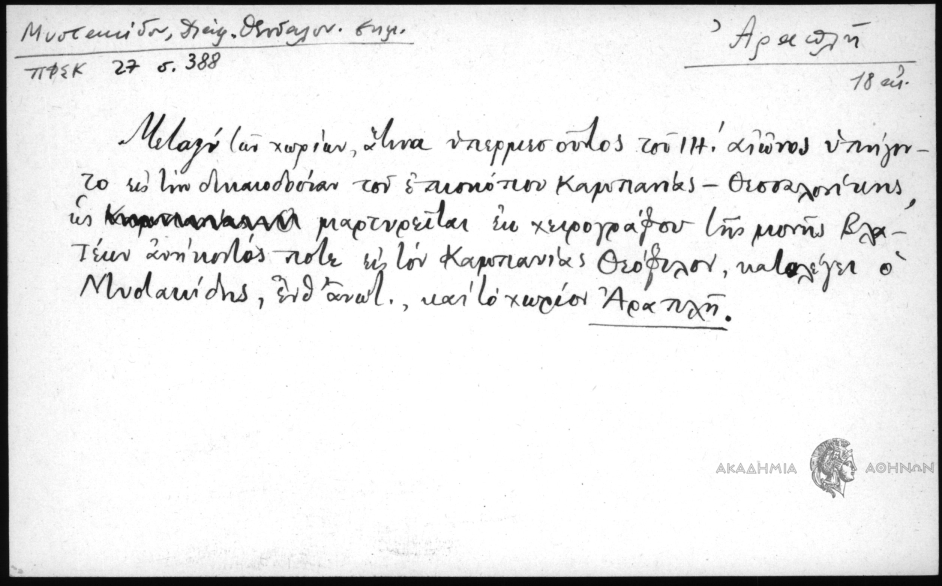 Μυστακίδου, Διάφ. Θεσσαλον. σημ.
ΠΦΣΚ 27 σ. 388
Ἀραπλῆ
18 αἰ.
Μεταξὺ τῶν χωρίων, ἅτινα ὑπερμεσοῦντος τοῦ ΙΗ΄. αἰῶνος ὑπήγον-
το εἰς τὴν δικαιοδοσίαν τοῦ ἐπισκόπου Καμπανίας – Θεσσαλονίκης,
ὡς μαρτυρεῖται ἐκ χειρογράφου τῆς μονῆς Βλα-
τέων ἀνήκοντός ποτε εἰς τὸν Καμπανίας Θεόφιλον, καταλέγει ὁ
Μυστακίδης, ἔνθ' ἀνωτ., καὶ τὸ χωρίον Ἀραπλῆ.
ΑΚΑΔΗΜΙΑ ΑΘΗΝΩΝ